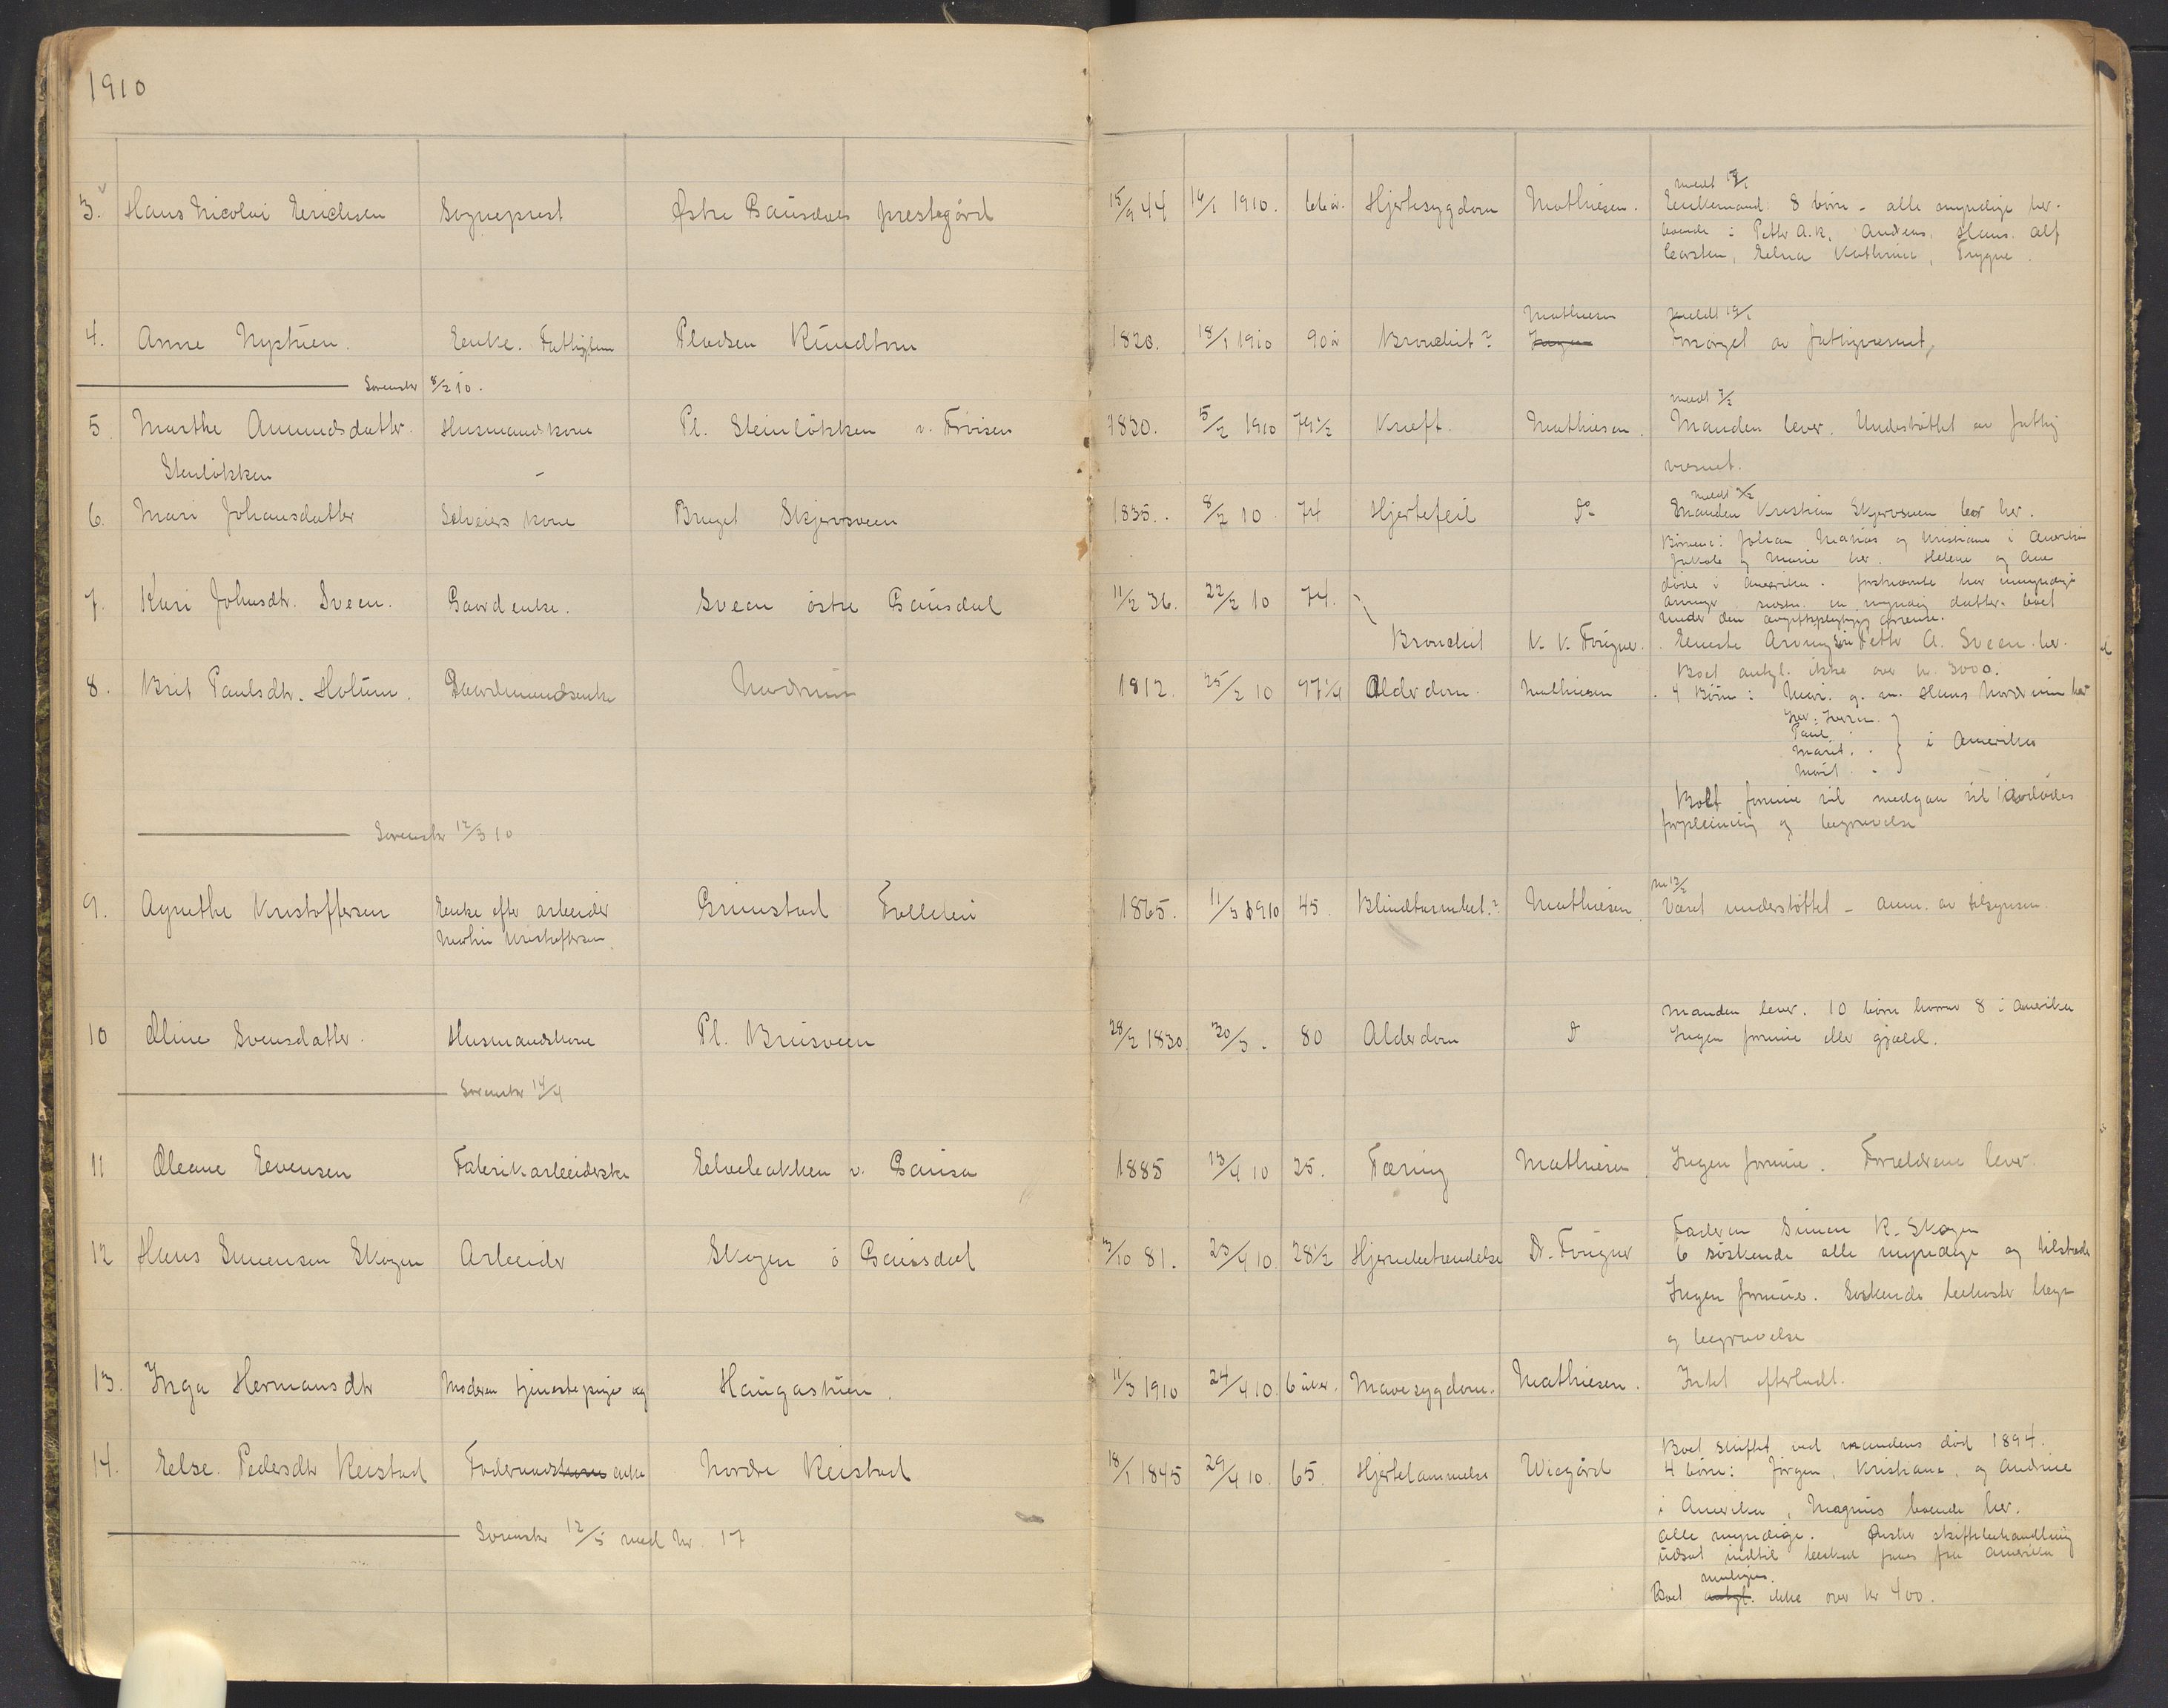 1910
3. Hans Nicolai Erichsen Sogneprest Østre Gausdal prestegård 15/9 44 16/1 1910. 66 år. Hjertesygdom Mathiesen.
Enkemand 8 børn - alle myndige her-
boende : Petter A. K, Andreas, Hans Alf
Carsten, Edna Kathrine, Trygve.
4. Anne Nystuen. Enke. Fattiglem Pladsen Rundtom 1820. 18/1 1910 90 år Bronchit? Mathiesen meldt 19/1
Forsørget av fattigvesnet,
Sorenskr 8/2 10.
meldt 7/2
5 Marthe Amundsdatter Husmandskone Pl. Steinløkken v. Frøisen 1830. 5/2 1910 79 1/2 Kræft. Mathiesen. Manden lever. Understøttet av fattig
Stenløkken - vesnet.
6. Mari Johansdatter Selveiers kone Bruget Skjervsveen 1835. 8/2 10 74 Hjertefeil Do Manden Kristian Skjervsveen bor her.
Børnene: Johan Mathias og Kristiane i Amerika
Jakob og Marie her. Helene og Ane
døde i Amerika. førstnævnte har umyndige
arvinger sidstn. en myndig datter. Boet
under den avgiftspligtige grense.
7. Kari Johnsdtr. Sveen. Gaardenke. Sveen østre Gausdal 11/2 36. 22/2 10 74.
Bronchit K. K. Fougner. Eneste Arving søn Petter A. Sveen her.
Boet antgl. ikke over kr 3000.
8. Brit Paulsdtr. Holum. Gaardmandsenke Nordrum 1812. 25/2 10 97 1/4 Alderdom. Mathiesen 4 Børn: Mari g. m. Hans Nordrum her
Iver: Iversn.
Paul
Marit.
Marit
i Amerika
Boets formue vil medgaa til avdødes
forpleining og begravelse
Sorenskr 12/3 10
9. Agnethe Kristoffersen Enke efter arbeider Grimstad Follebu 1865. 11/3 1910 45. Blindtarmbet.? Mathiesen Været understøttet - anm. av tilsynsm.
Martin Kristoffersen
Manden lever. 10 børn hvorav 8 i Amerika
10 Oline Svensdatter. Husmandskone Pl. Bruisveen 28/2 1830. 30/3 - 80 Alderdom Do Ingen formue eller gjæld.
Sorenskr 14/4
11 Oleane Evensen Fabrikarbeiderske Elvebakken v. Gausa 1885 13/4 10 25. Tæring Mathiesen Ingen formue. Forældrene lever.
Faderen Simen K. Skogen
12 Hans Simensen Skogen Arbeider Skogen ö Gausdal 3/10 81. 23/4 10 28 1/2 Hjernebetændelse Dr. Fougner 6 søskende alle myndige og tilstede
Ingen formue. Søskende bekoster læge
og begravelse
13. Inga Hermansdtr Moderen tjenestepige og Haugastuen. 11/3 1910 24/4 10. 6 uker. Mavesygdom. Mathiesen. Intet efterladt.
Boet skiftet ved mandens død 1894.
14. Else Pedersdtr Keistad Føderaadskone enke Nordre Keistad 18/1 1845 29/4 10. 65. Hjertelammelse Wiegård 4 børn: Jørgen, Kristiane, og Andrine
i Amerika, Magnus boende her.
alle myndige. Ønsker skiftebehandling
udsat indtil beskad faaes fra Amerika
muligens.
Boet antgl. ikke over kr 400.
Sorenskr 12/5 med nr. 17